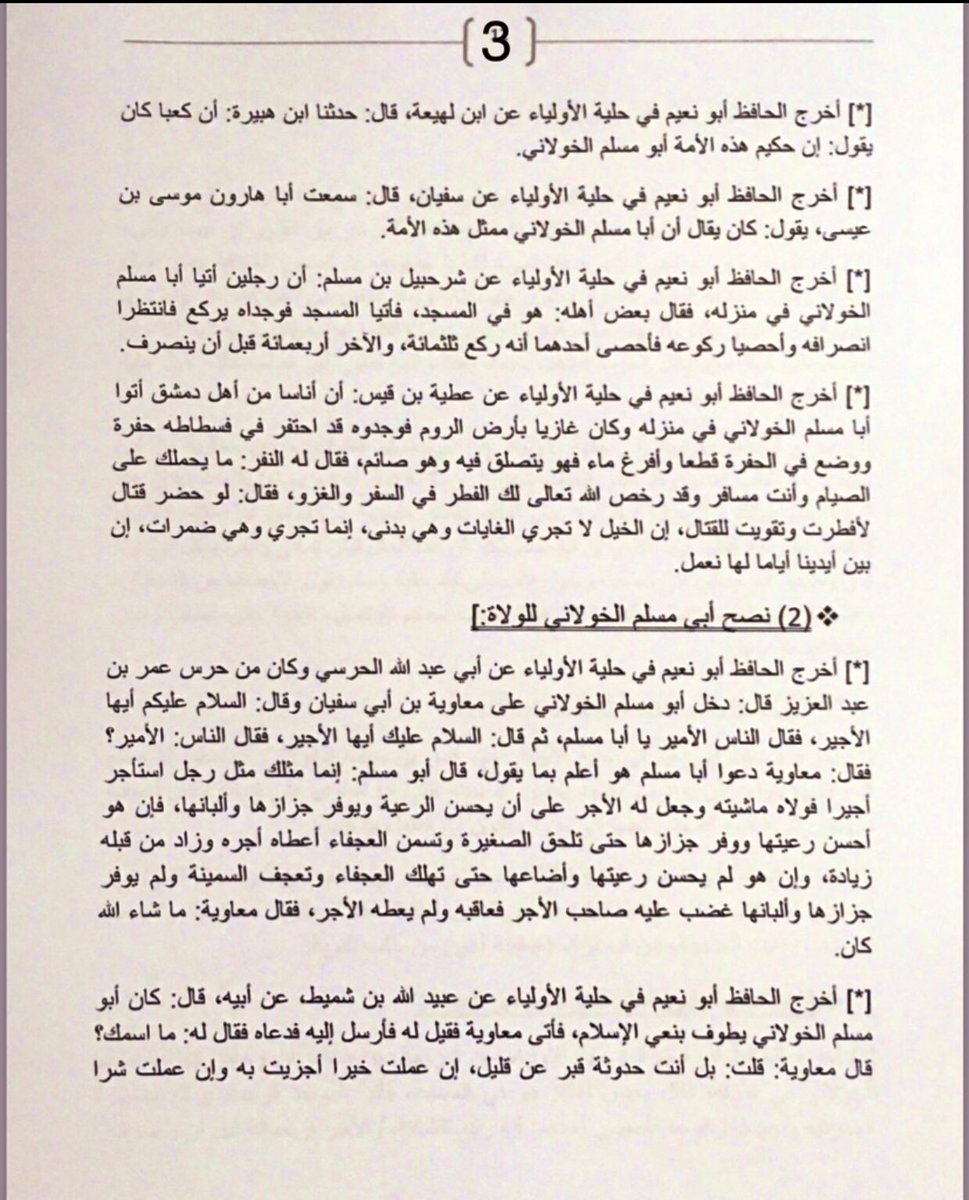 3
[*] أخرج الحافظ أبو نعيم في حلية الأولياء عن ابن لهيعة، قال: حدثنا ابن هبيرة: أن كعبا كان
يقول: إن حكيم هذه الأمة أبو مسلم الخولاني.
[*] أخرج الحافظ أبو نعيم في حلية الأولياء عن سفيان، قال: سمعت أبا هارون موسى بن
عيسى، يقول: كان يقال أن أبا مسلم الخولاني ممثل هذه الأمة.
[*] أخرج الحافظ أبو نعيم في حلية الأولياء عن شرحبيل بن مسلم: أن رجلين أتيا أبا مسلم
الخولاني في منزله، فقال بعض أهله: هو في المسجد، فأتيا المسجد فوجداه يركع فانتظرا
انصرافه وأحصيا ركوعه فأحصى أحدهما أنه ركع ثلثمائة، والآخر أربعمائة قبل أن ينصرف.
[*] أخرج الحافظ أبو نعيم في حلية الأولياء عن عطية بن قيس: أن أناسا من أهل دمشق أتوا
أبا مسلم الخولاني في منزله وكان غازيا بأرض الروم فوجدوه قد احتفر في فسطاطه حفرة
ووضع في الحفرة قطعا وأفرغ ماء فهو يتصلق فيه وهو صائم، فقال له النفر: ما يحملك على
الصيام وأنت مسافر وقد رخص الله تعالى لك الفطر في السفر والغزو، فقال: لو حضر قتال
لأفطرت وتقويت للقتال، إن الخيل لا تجري الغايات وهي بدنى، إنما تجري وهي ضمرات، إن
بين أيدينا أياما لها نعمل.
❖ (2) نصح أبي مسلم الخولاني للولاة:]
[*] أخرج الحافظ أبو نعيم في حلية الأولياء عن أبي عبد الله الحرسي وكان من حرس عمر بن
عبد العزيز قال: دخل أبو مسلم الخولاني على معاوية بن أبي سفيان وقال: السلام عليكم أيها
الأجير، فقال الناس الأمير يا أبا مسلم، ثم قال: السلام عليك أيها الأجير، فقال الناس: الأمير؟
فقال: معاوية دعوا أبا مسلم هو أعلم بما يقول، قال أبو مسلم: إنما مثلك مثل رجل استأجر
أجيرا فولاه ماشيته وجعل له الأجر على أن يحسن الرعية ويوفر جزازها وألبانها، فإن هو
أحسن رعيتها ووفر جزازها حتى تلحق الصغيرة وتسمن العجفاء أعطاه أجره وزاد من قبله
زيادة، وإن هو لم يحسن رعيتها وأضاعها حتى تهلك العجفاء وتعجف السمينة ولم يوفر
جزازها وألبانها غضب عليه صاحب الأجر فعاقبه ولم يعطه الأجر، فقال معاوية: ما شاء الله
كان.
[*] أخرج الحافظ أبو نعيم في حلية الأولياء عن عبيد الله بن شميط، عن أبيه، قال: كان أبو
مسلم الخولاني يطوف بنعي الإسلام، فأتى معاوية فقيل له فأرسل إليه فدعاه فقال له: ما اسمك؟
قال معاوية: قلت: بل أنت حدوثة قبر عن قليل، إن عملت خيرا أجزيت به وإن عملت شرا